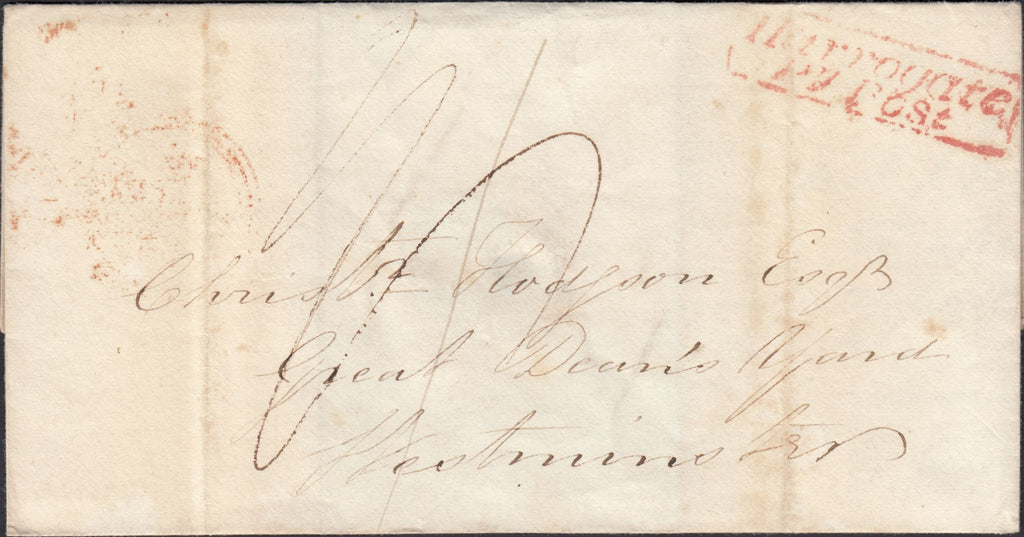 Harrogate
Py Post
Christr Hodgson Esqr
Great Dean's Yard
Westminster